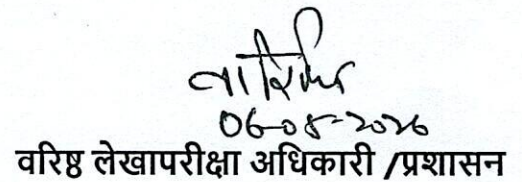 06-05-2026
वरिष्ठ लेखापरीक्षा अधिकारी /प्रशासन